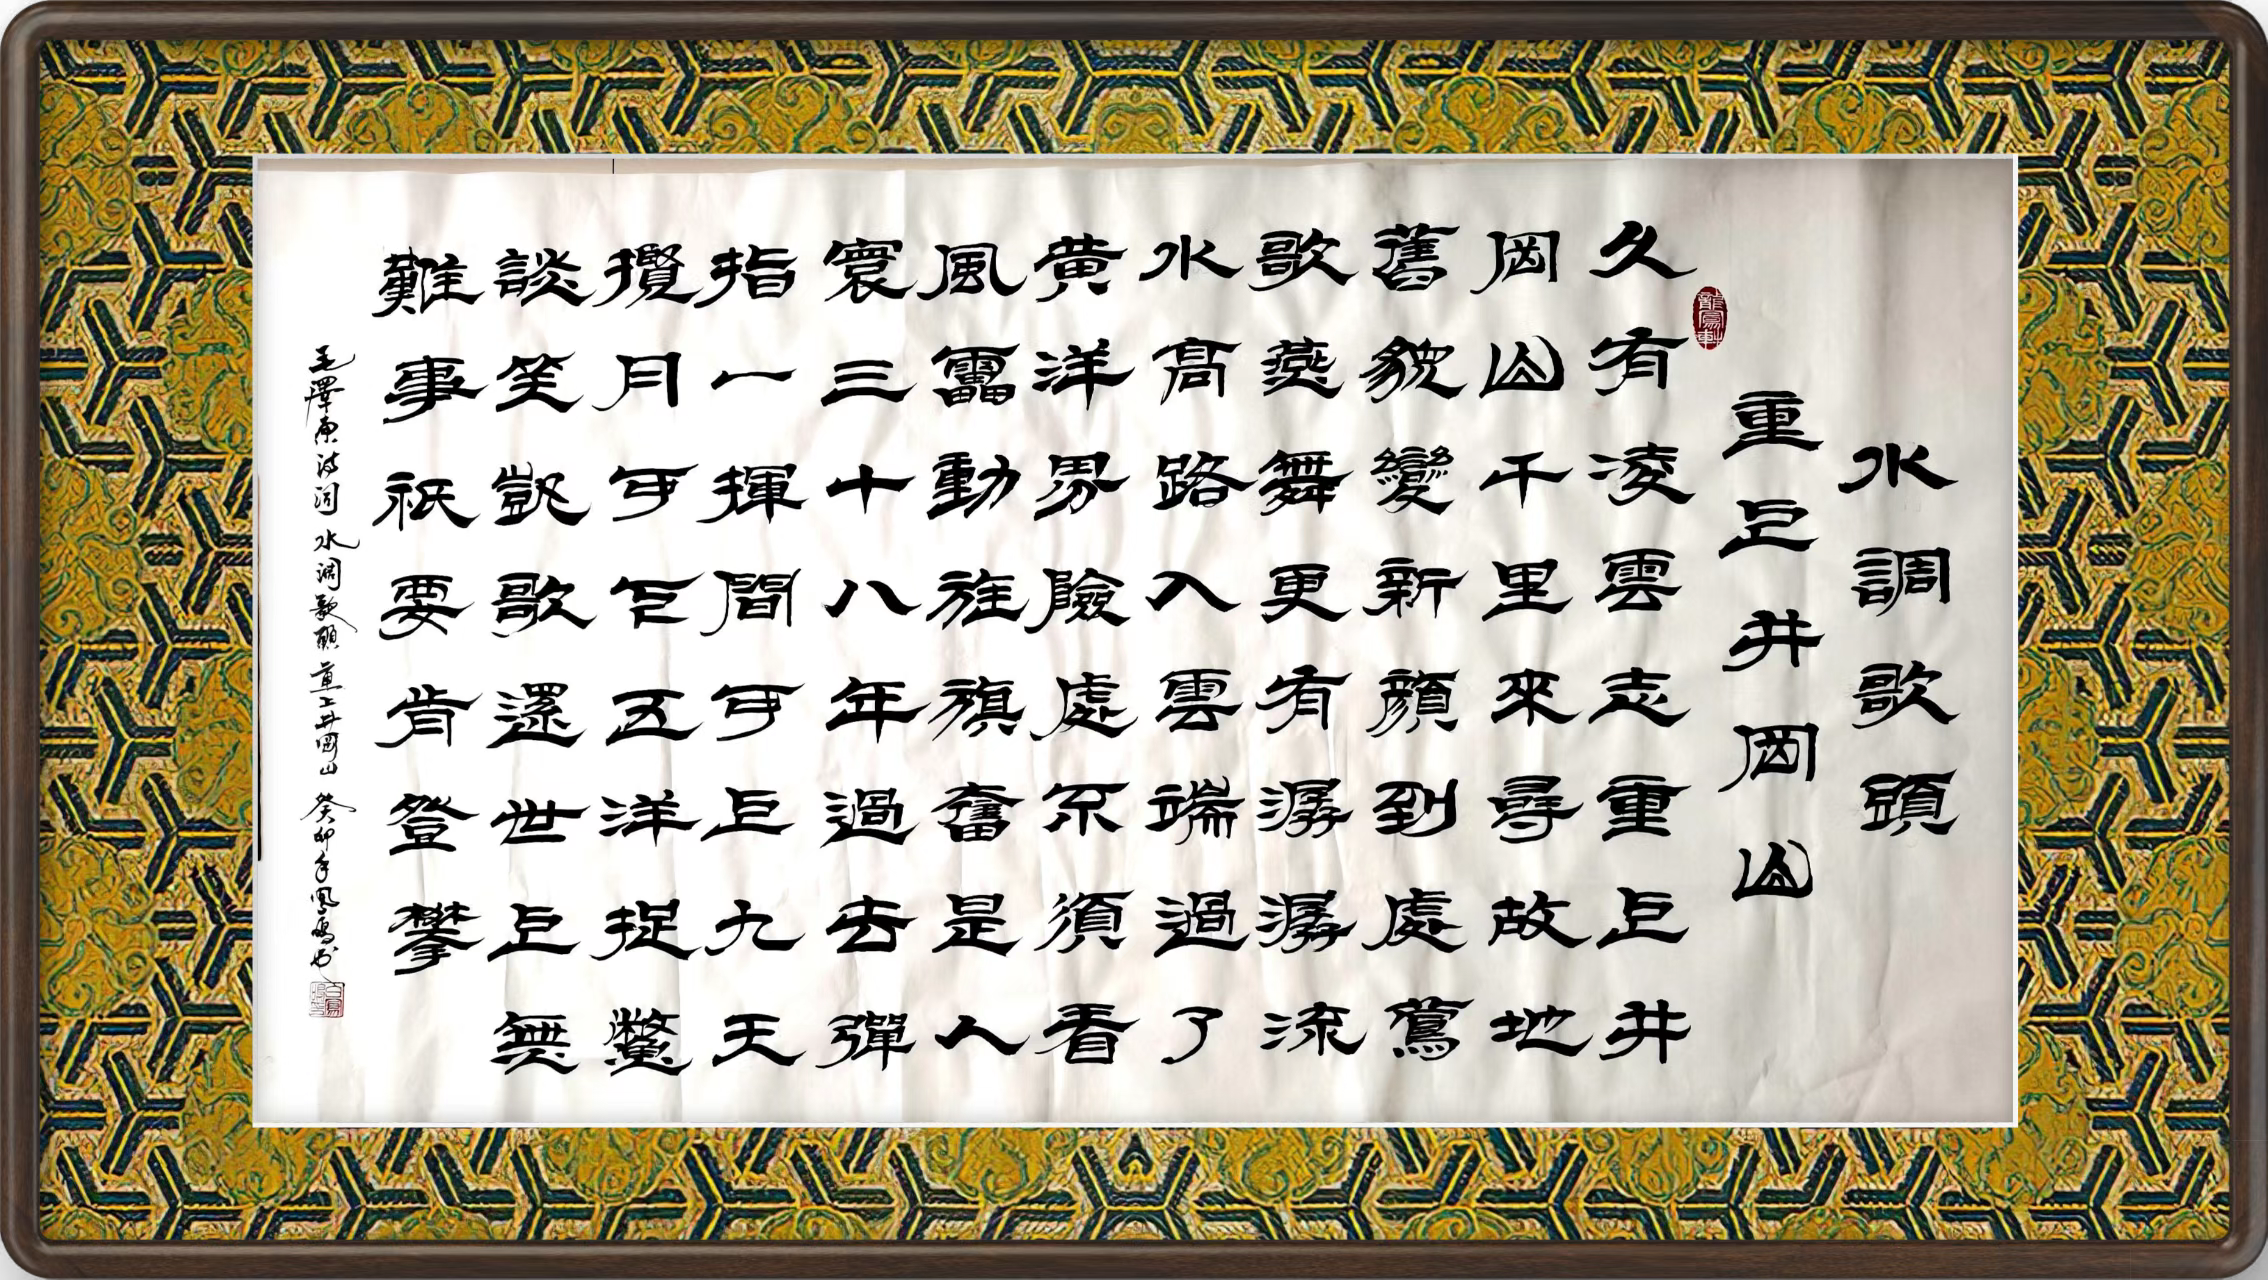 水調歌頭
重上井岡山
龍鳳軒
久有凌雲志重上井
岡山千里來尋故地
舊貌變新顏到處鶯
歌燕舞更有潺潺流
水高路入雲端過了
黄洋界險處不須看
風靁動旌旗奮是人
寰三十八年過去彈
指一揮間可上九天
攬月可下五洋捉鱉
談笑凱歌還世上無
難事祇要肯登攀
毛澤東詩詞 水調歌頭 重上井岡山 癸卯年鳳鳴書